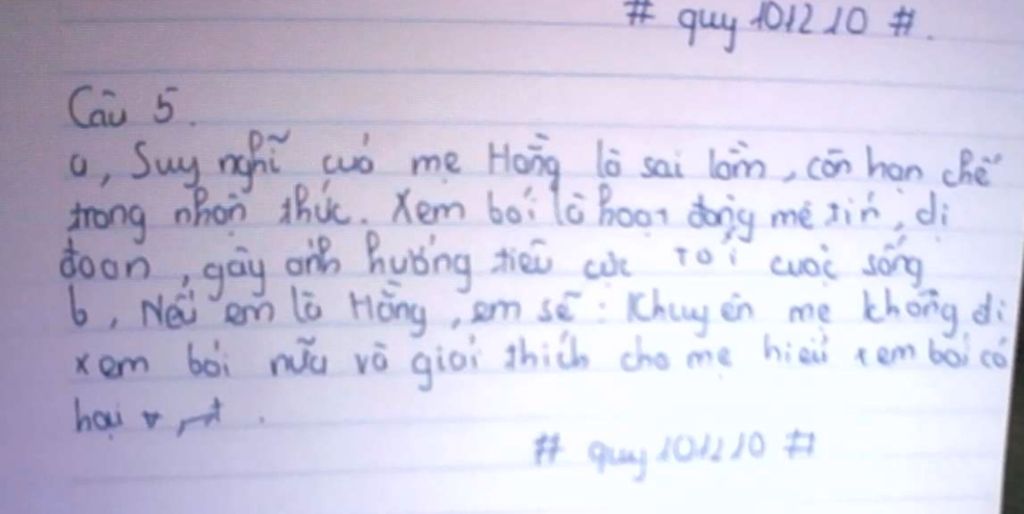 # quy 101210 #.
Câu 5.
a, Suy nghĩ của mẹ Hằng là sai lầm, còn hạn chế
trong nhận thức. Xem bói là hoạt động mê tín, dị
đoan, gây ảnh hưởng tiêu cực tới cuộc sống
b, Nếu em là Hằng, em sẽ: Khuyên mẹ không đi
xem bói nữa và giải thích cho mẹ hiểu xem bói có
hại
# quy 101210 #